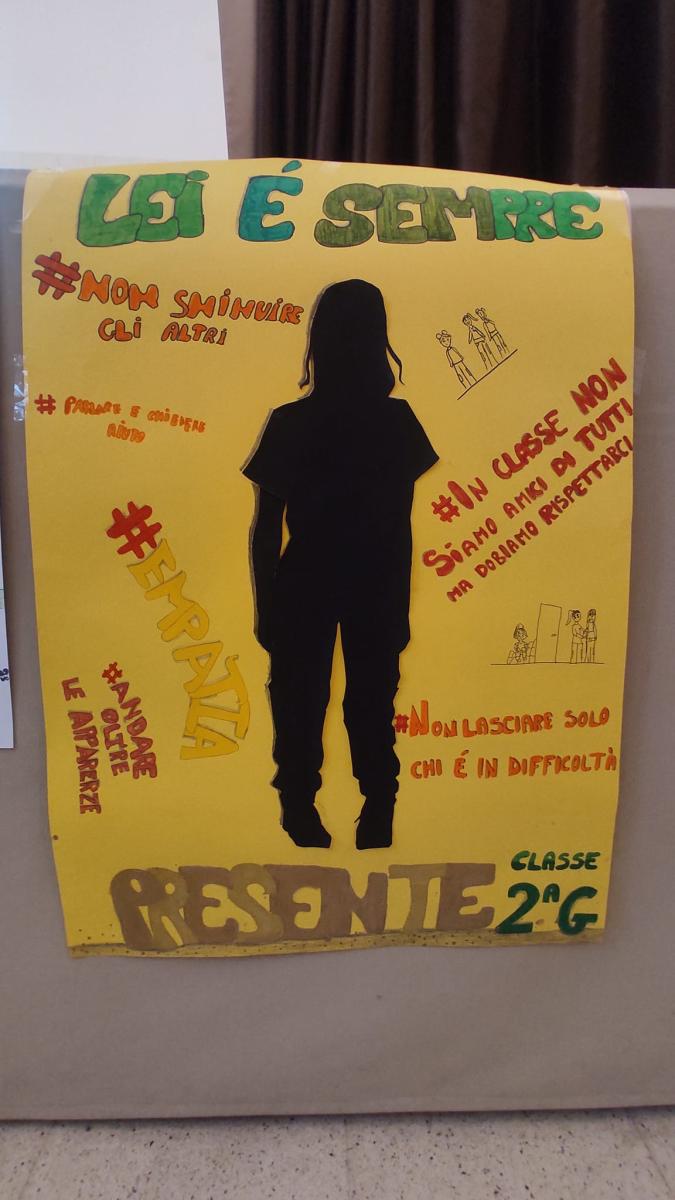 LEI É SEMPRE
#NON SMINUIRE
GLI ALTRI
# PARLARE E CHIEDERE
AIUTO
#IN CLASSE NON
SIAMO AMICI DI TUTTI
MA DOBIAMO RISPETTARCI
#EMPATIA
#ANDARE
OLTRE
LE APPARENZE
#NON LASCIARE SOLO
CHI É IN DIFFICOLTÀ
PRESENTE
CLASSE
2ªG